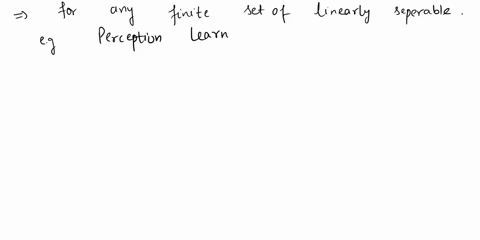 ⇒ for any finite set of linearly seperable.
e.g Perception Learn